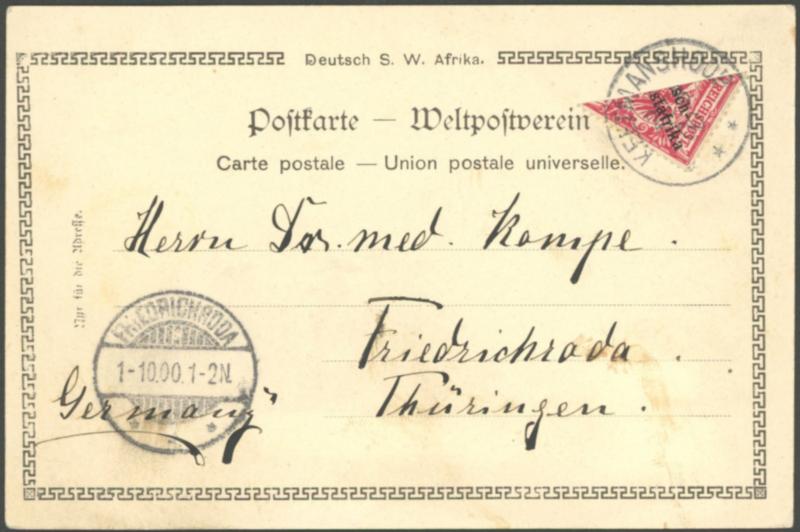 Deutsch S. W. Afrika.
Postkarte — Weltpostverein
Carte postale — Union postale universelle.
REICHSPOST
Süd-
westafrika
Nur für die Adresse.
Herrn Dr. med. Kompe.
Friedrichroda.
Thüringen.
Germany
FRIEDRICHRODA
1-10.00.1-2N.